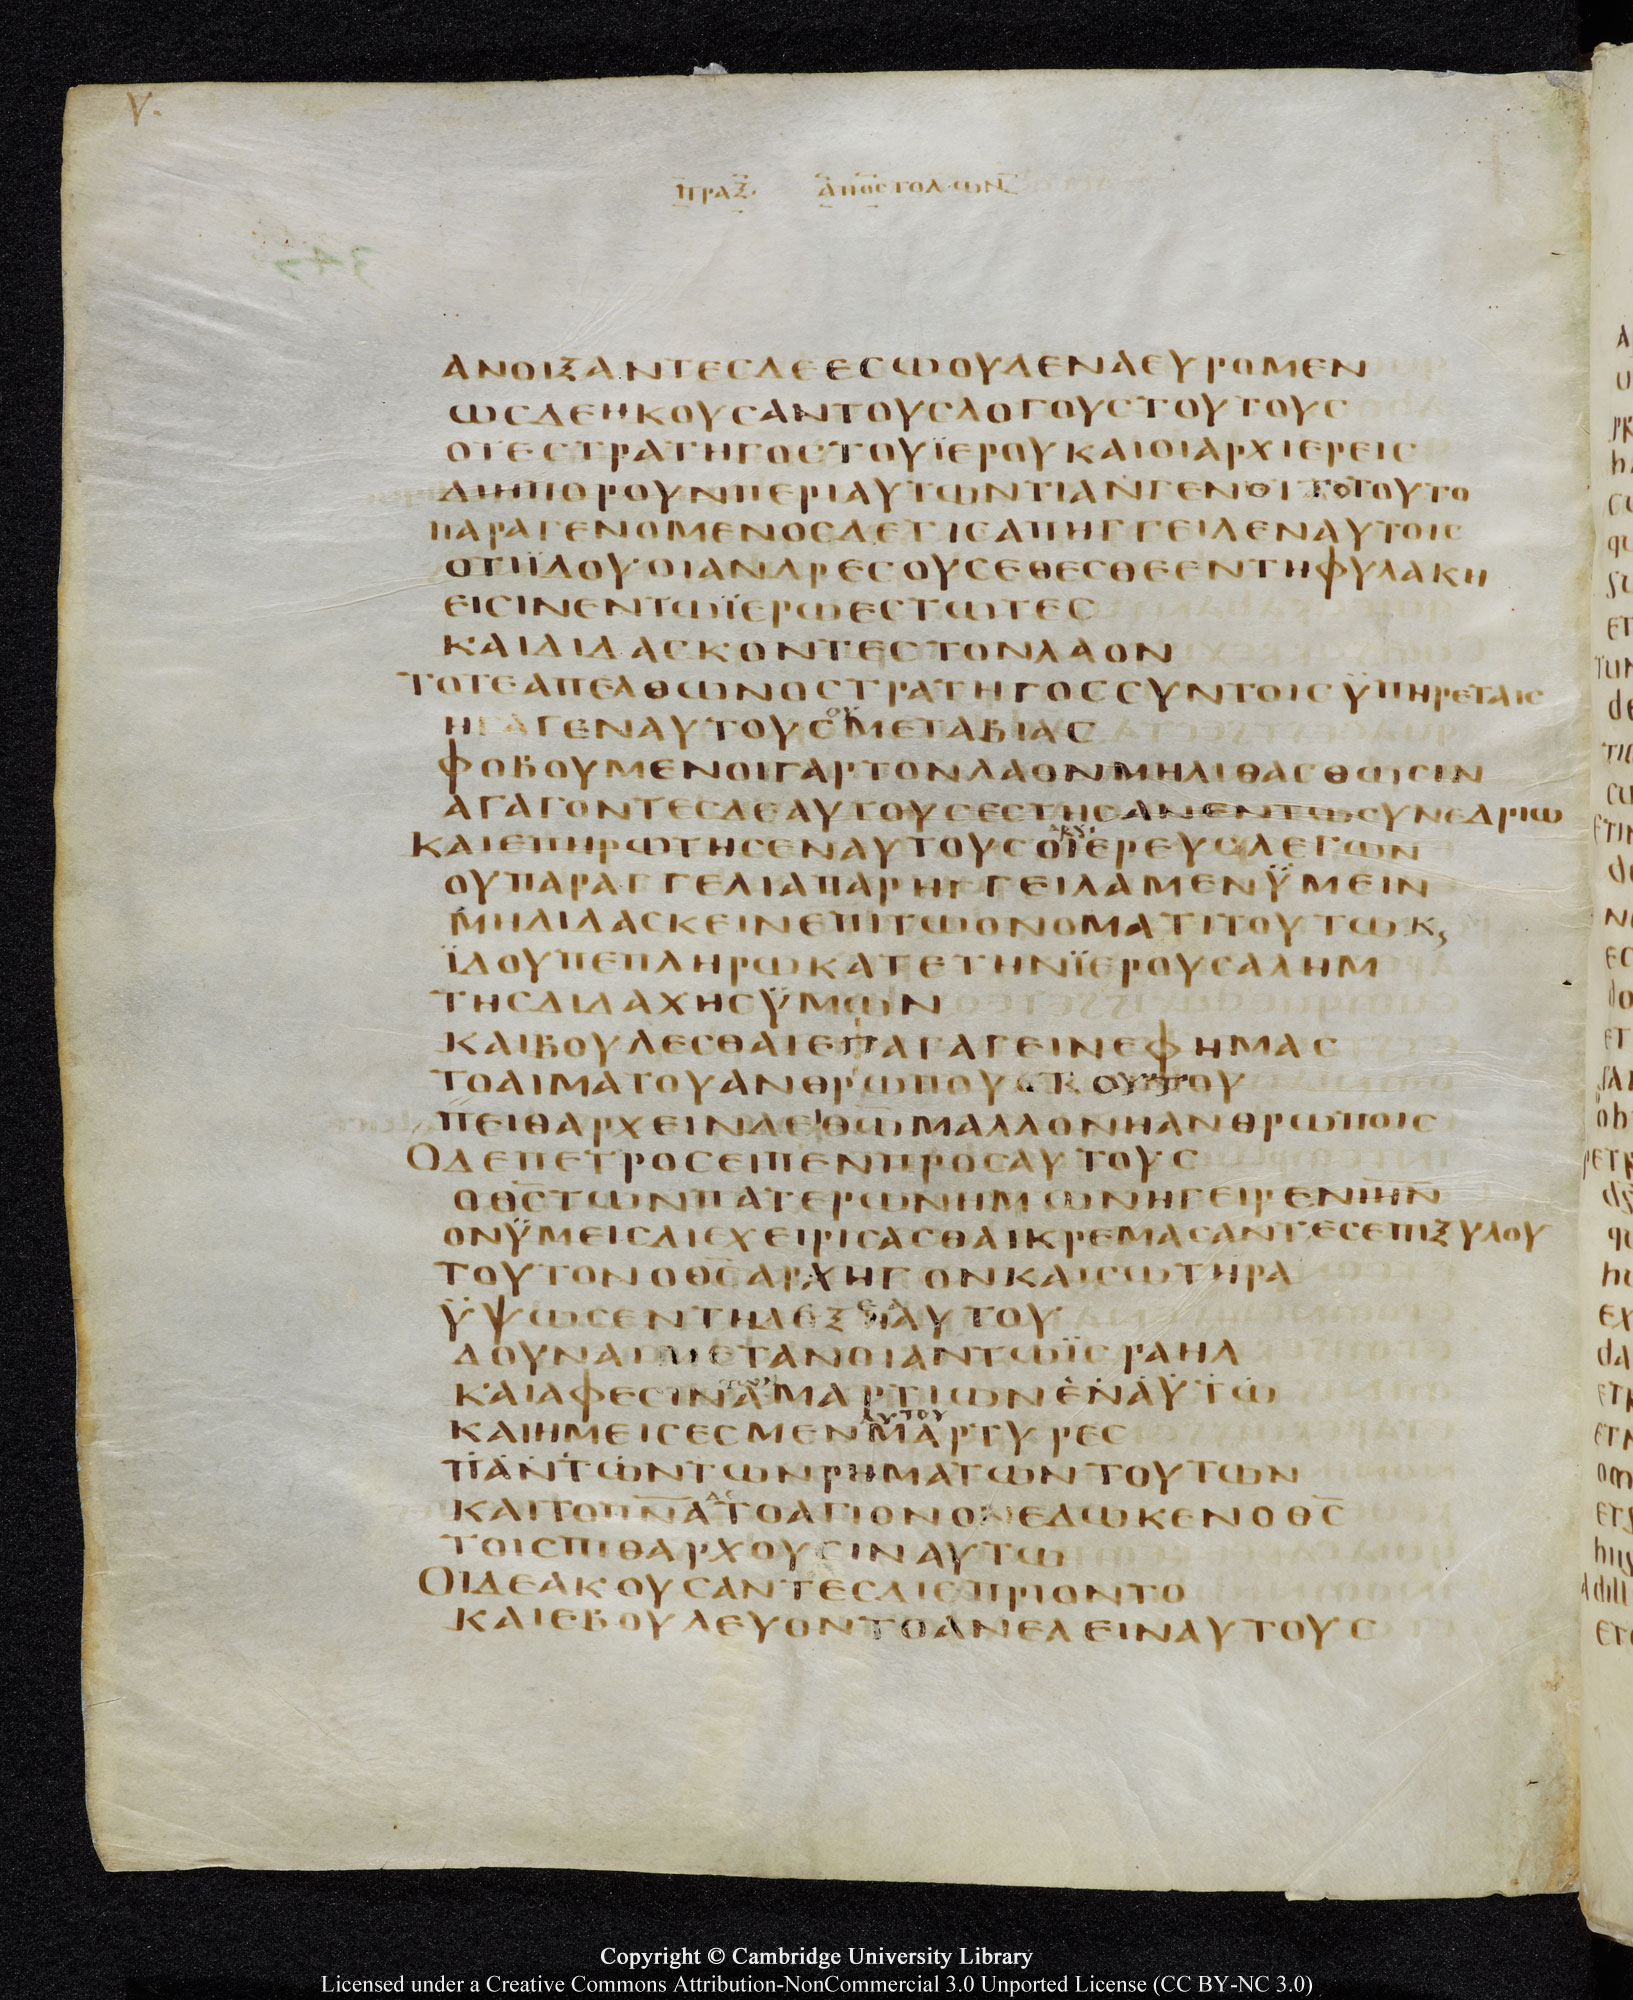 V.
ΠΡΑΞ. ΑΠΟΣΤΟΛΩΝ
ΑΝΟΙΞΑΝΤΕСΔΕΕСωΟΥΔΕΝΑΕΥΡΟΜΕΝ
ωСΔΕΗΚΟΥСΑΝΤΟΥСΛΟΓΟΥСΤΟΥΤΟΥС
ΟΤΕСΤΡΑΤΗΓΟСΤΟΥΪΕΡΟΥΚΑΙΟΙΑΡΧΙΕΡΕΙС
ΔΙΗΠΟΡΟΥΝΠΕΡΙΑΥΤωΝΤΙΑΝΓΕΝΟΙΤΟΤΟΥΤΟ
ΠΑΡΑΓΕΝΟΜΕΝΟСΔΕΤΙСΑΠΗΓΓΕΙΛΕΝΑΥΤΟΙС
ΟΤΙΪΔΟΥΟΙΑΝΔΡΕСΟΥСΕΘΕСΘΕΕΝΤΗΦΥΛΑΚΗ
ΕΙСΙΝΕΝΤωΪΕΡωΕСΤωΤΕС
ΚΑΙΔΙΔΑСΚΟΝΤΕСΤΟΝΛΑΟΝ
ΤΟΤΕΑΠΕΛΘωΝΟСΤΡΑΤΗΓΟССΥΝΤΟΙСΫΠΗΡΕΤΑΙС
ΗΓΑΓΕΝΑΥΤΟΥС ΟΥ ΜΕΤΑΒΙΑС
ΦΟΒΟΥΜΕΝΟΙΓΑΡΤΟΝΛΑΟΝΜΗΛΙΘΑСΘωСΙΝ
ΑΓΑΓΟΝΤΕСΔΕΑΥΤΟΥСΕСΤΗСΑΝΕΝΤωСΥΝΕΔΡΙω
ΚΑΙΕΠΗΡωΤΗСΕΝΑΥΤΟΥСΟ ΑΡΧ ΙΕΡΕΥСΛΕΓωΝ
ΟΥΠΑΡΑΓΓΕΛΙΑΠΑΡΗΓΓΕΙΛΑΜΕΝΫΜΕΙΝ
ΜΗΔΙΔΑСΚΕΙΝΕΠΙΤωΟΝΟΜΑΤΙΤΟΥΤωΚ,
ΪΔΟΥΠΕΠΛΗΡωΚΑΤΕΤΗΝΪΕΡΟΥСΑΛΗΜ
ΤΗСΔΙΔΑΧΗСΫΜωΝ
ΚΑΙΒΟΥΛΕСΘΑΙΕΠΑΓΑΓΕΙΝΕΦΗΜΑС
ΤΟΑΙΜΑΤΟΥΑΝΘΡωΠΟΥ
ΠΕΙΘΑΡΧΕΙΝΔΕΘωΜΑΛΛΟΝΗΑΝΘΡωΠΟΙС
ΟΔΕΠΕΤΡΟСΕΙΠΕΝΠΡΟСΑΥΤΟΥС
ΟΘ̅С̅ΤωΝΠΑΤΕΡωΝΗΜωΝΗΓΕΙΡΕΝΙ̅Η̅Ν̅
ΟΝΫΜΕΙСΔΙΕΧΕΙΡΙСΑСΘΑΙΚΡΕΜΑСΑΝΤΕСΕΠΙΞΥΛΟΥ
ΤΟΥΤΟΝΟΘ̅С̅ΑΡΧΗΓΟΝΚΑΙСωΤΗΡΑ
ΫΨωСΕΝΤΗΔΕΞΙΑΑΥΤΟΥ
ΔΟΥΝΑΙΜΕΤΑΝΟΙΑΝΤωΪСΡΑΗΛ
ΚΑΙΑΦΕСΙΝΑΜΑΡΤΙωΝΕΝΑΥΤω
ΚΑΙΗΜΕΙСΕСΜΕΝ ΑΥΤΟΥ ΜΑΡΤΥΡΕС
ΠΑΝΤωΝΤωΝΡΗΜΑΤωΝΤΟΥΤωΝ
ΚΑΙΤΟΠ̅Ν̅Α̅ ΔΕ ΤΟΑΓΙΟΝΟΝΕΔωΚΕΝΟΘ̅С̅
ΤΟΙСΠΙΘΑΡΧΟΥСΙΝΑΥΤω
ΟΙΔΕΑΚΟΥСΑΝΤΕСΔΙΕΠΡΙΟΝΤΟ
ΚΑΙΕΒΟΥΛΕΥΟΝΤΟΑΝΕΛΕΙΝΑΥΤΟΥС
Copyright © Cambridge University Library
Licensed under a Creative Commons Attribution-NonCommercial 3.0 Unported License (CC BY-NC 3.0)